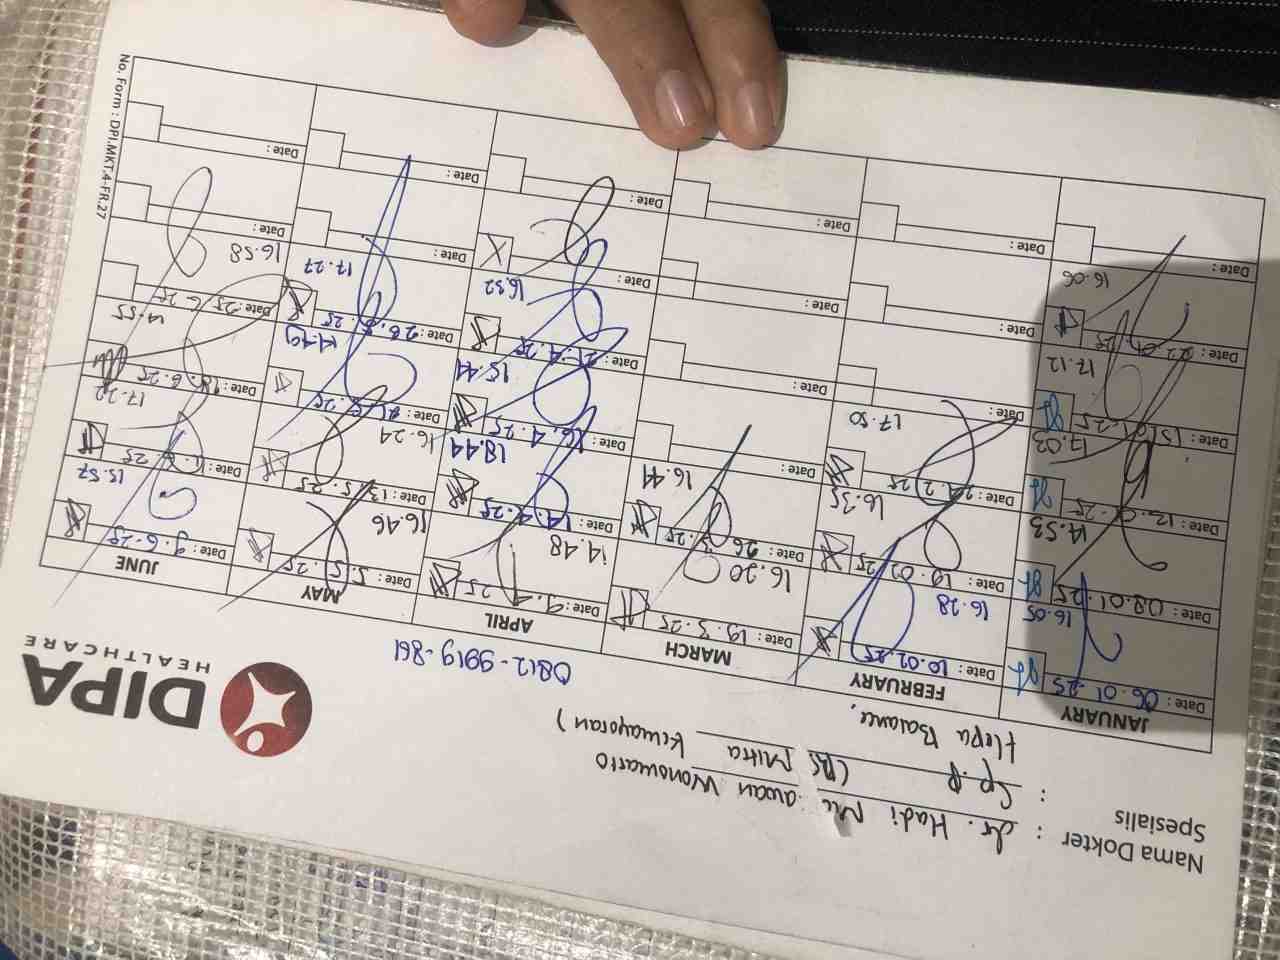 Nama Dokter : dr. Hadi
Spesialis : Sp.P (RS. Mitra Kemayoran)
Hepa Balance,
0812-9919-861
DIPA
HEALTHCARE
JANUARY
Date : 06.01.25
16.05
Date : 08.01.25
14.53
Date : 12.01.25
17.03
Date : 15.01.25
17.12
Date : 22.01.25
16.06
Date :
FEBRUARY
Date : 10.02.25
16.28
Date : 19.02.25
16.35
Date : 24.2.25
17.50
Date :
Date :
Date :
MARCH
Date : 19.3.25
16.20
Date : 26.3.25
16.44
Date :
Date :
Date :
Date :
APRIL
Date : 9. 25
14.48
Date : 14.4.25
18.44
Date : 16.4.25
15.44
Date : 21.4.25
16.32
Date :
MAY
Date : 5.5.25
16.46
Date : 13.5.25
16.24
Date :
14.49
Date : 26.5.25
17.27
Date :
Date :
JUNE
Date : 9.6.25
15.57
Date :
17.22
Date : 18.6.25
14.55
Date : 25.6.25
16.58
Date :
Date :
No. Form : DPI.MKT.4-FR.27